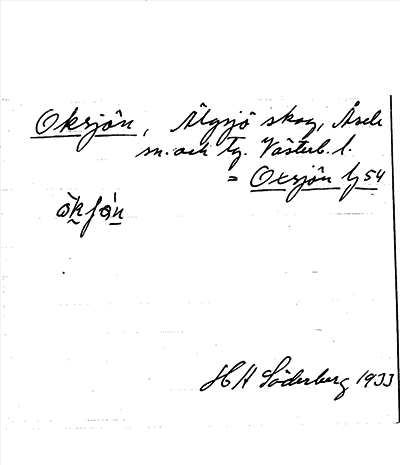 Oksjön, Älgsjö skog, Åsele
sn. och tg. Västerb. l.
= Oxsjön bj 54
H H Söderberg 1933